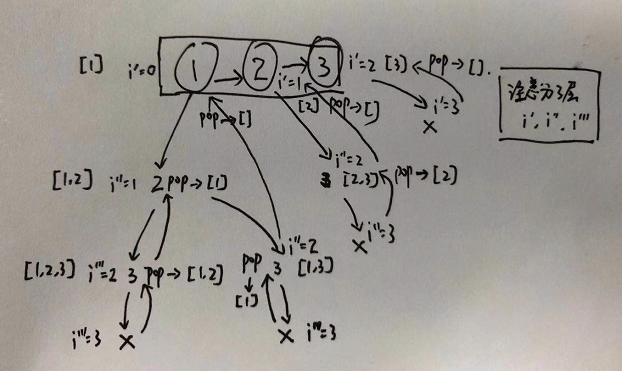 [1] i'=0 1 → 2 → 3 i'=2 [3] pop→[].
i'=1 [2] pop→[]
i'=3
×
注意分3层
i', i'', i'''
pop→[]
[1,2] i''=1 2 pop→[1]
i''=2
3 [2,3] pop→[2]
× i'''=3
[1,2,3] i'''=2 3 pop→[1,2]
i''=2
pop 3 [1,3]
↓
[1]
i'''=3 ×
× i'''=3